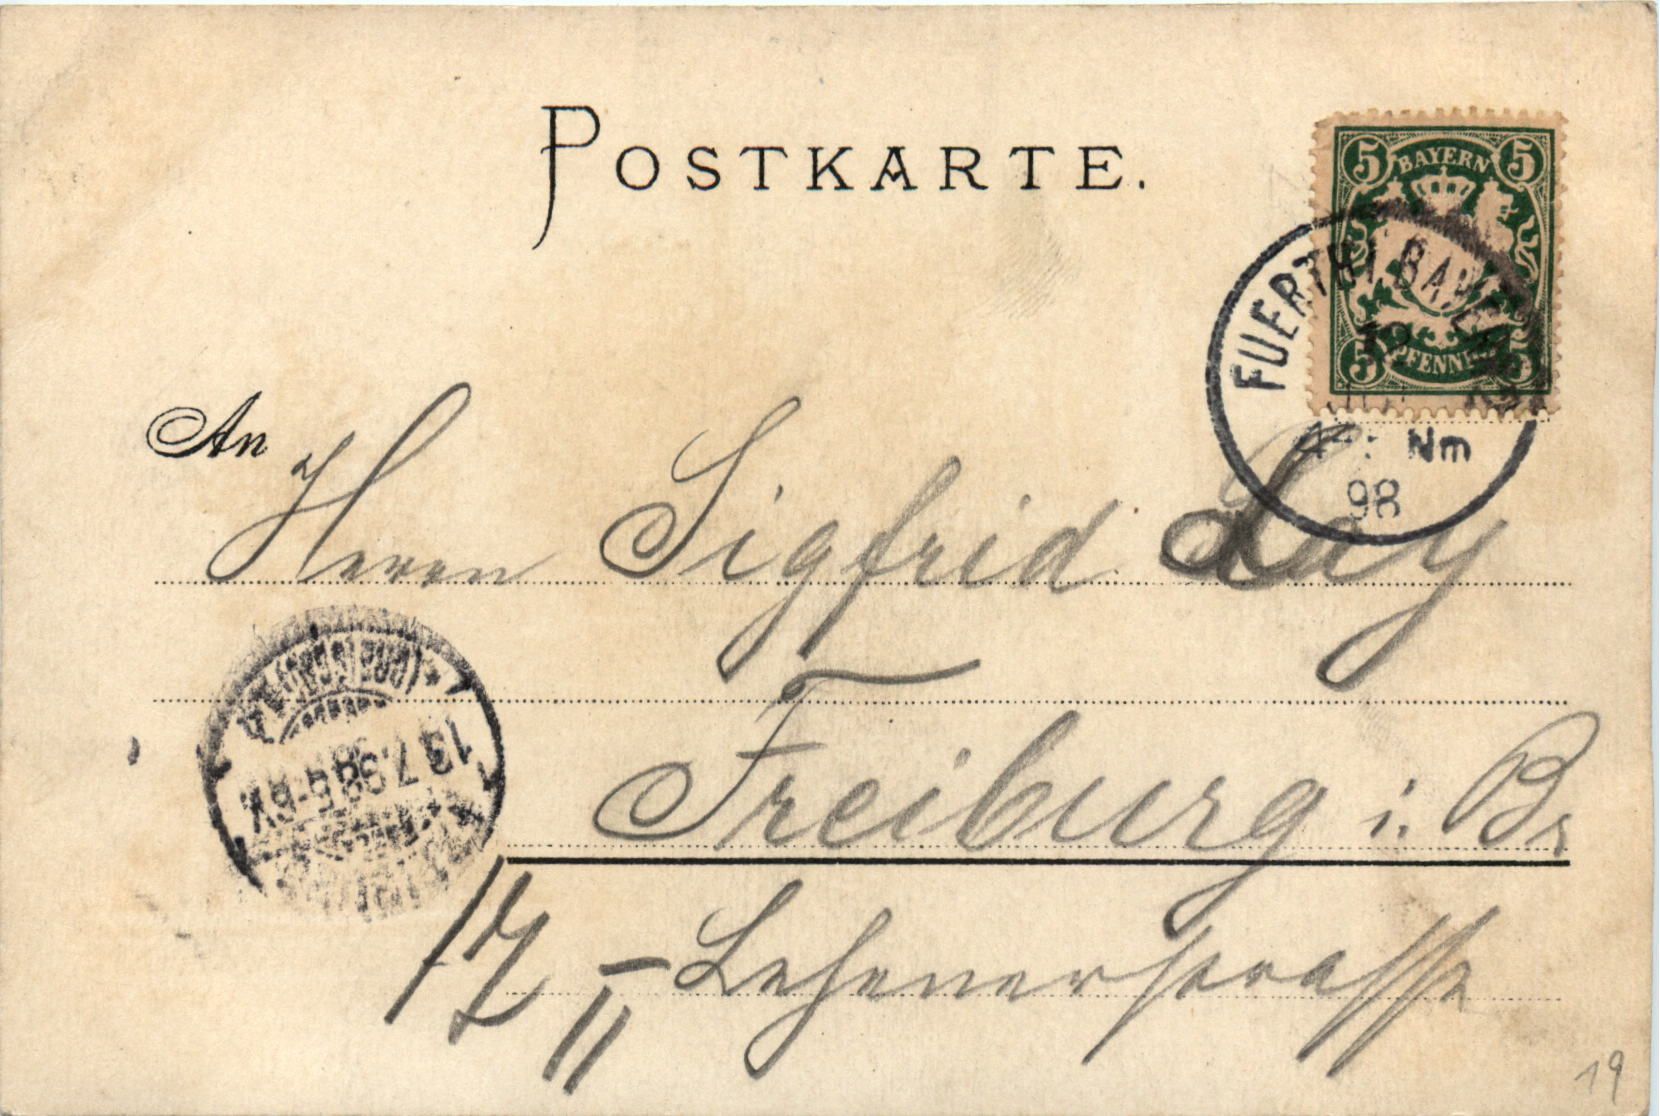 POSTKARTE.
5 BAYERN 5
5 PFENNIG 5
FUERTH I. BAYERN
12
Nm
98
An
Herrn Sigfrid Lay
Freiburg i. Br
Lehenerstrasse
(BREISGAU)
13.7.98
19